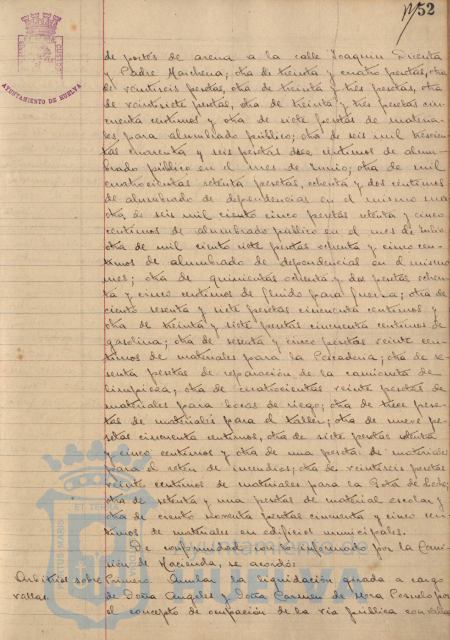 52
AYUNTAMIENTO DE HUELVA
de portes de arena a la calle Joaquin
y Padre Marchena; otra de treinta y cuatro pesetas, otra
de veintiseis pesetas, otra de treinta y tres pesetas, otra
de veintisiete pesetas, otra de treinta y tres pesetas cin-
cuenta centimos y otra de siete pesetas de materia-
les para alumbrado público; otra de seis mil trescien-
tas cuarenta y seis pesetas doce centimos de alum-
brado público en el mes de Junio; otra de mil
cuatrocientas setenta pesetas, ochenta y dos centimos
de alumbrado de dependencias en el mismo mes
otra de seis mil ciento cinco pesetas setenta y cinco
centimos de alumbrado público en el mes de Julio
otra de mil ciento siete pesetas ochenta y cinco cen-
timos de alumbrado de dependencias en el mismo
mes; otra de quinientas ochenta y dos pesetas ochen-
ta y cinco centimos de fluido para fuerza; otra de
ciento sesenta y siete pesetas cincuenta centimos y
otra de treinta y siete pesetas cincuenta centimos de
gasolina; otra de setenta y cinco pesetas veinte cen-
timos de materiales para la Pescaderia; otra de se-
senta pesetas de reparación de la camioneta de
limpieza; otra de cuatrocientas veinte pesetas de
materiales para bocas de riego; otra de trece pese-
tas de materiales para el taller; otra de nueve pe-
setas cincuenta centimos, otra de siete pesetas setenta
y cinco centimos y otra de una peseta de materiales
para el reten de incendios; otra de veintiseis pesetas
veinte centimos de materiales para la Gota de Leche;
otra de setenta y una pesetas de material escolar y
otra de ciento noventa pesetas cincuenta y cinco cen-
timos de materiales en edificios municipales.
De conformidad con lo informado por la Comi-
sión de Hacienda, se acordó:
Arbitrios sobre
vallas.
Primero. Anular la liquidación girada a cargo
de Doña Angeles y Doña Carmen de Mora por
el concepto de ocupación de la via pública con vallas